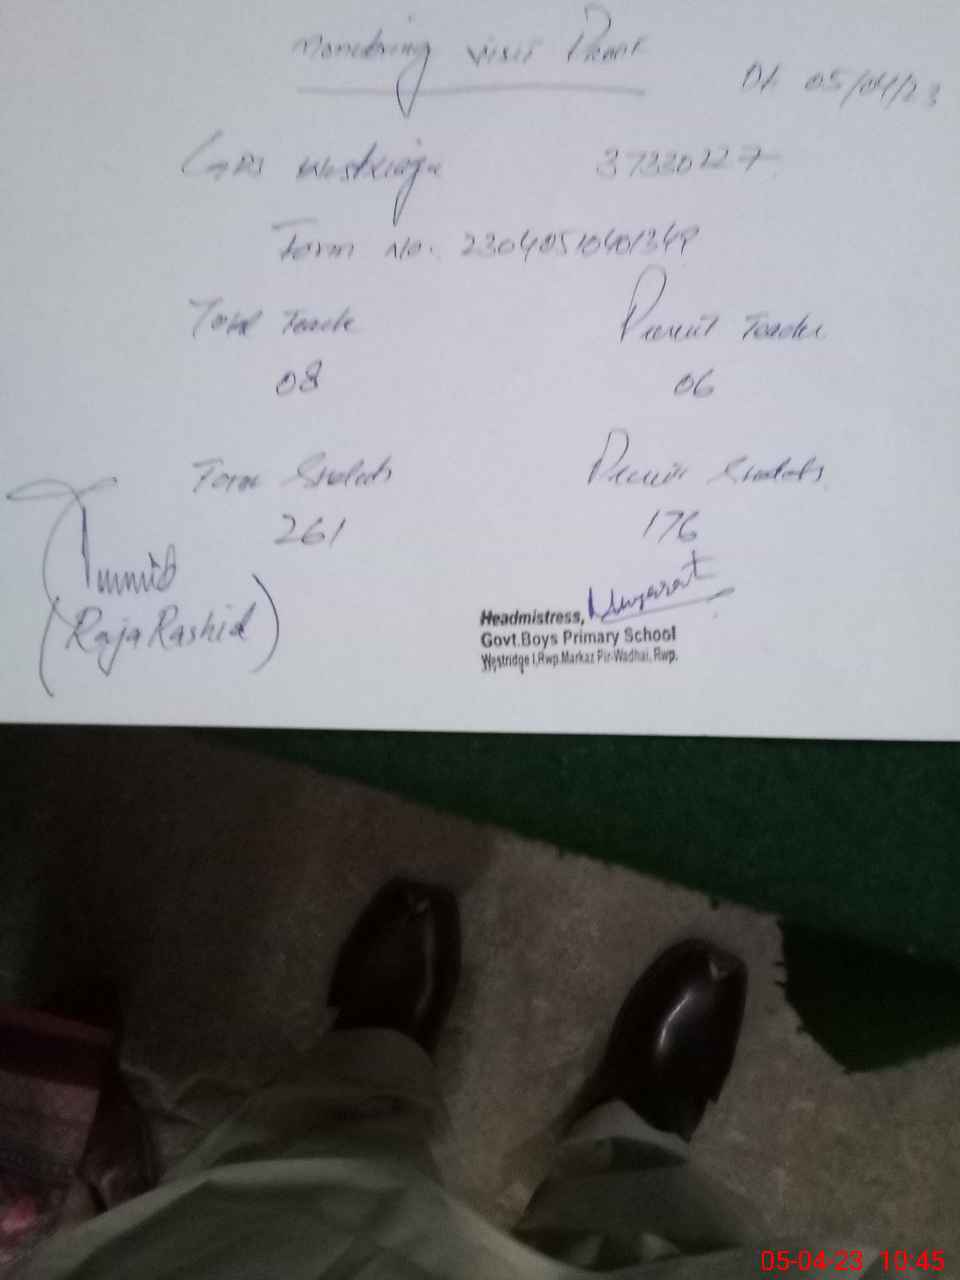 Monitoring Visit Proof
Dt. 05/04/23
GPS Westridge 37330227
Form No. 23040510401349
Total Teache Present Teacher
08 06
Total Students Present Students
261 176
(Raja Rashid)
Headmistress,
Govt.Boys Primary School
Westridge I,Rwp.Markaz Pir-Wadhai, Rwp.
05-04-23 10:45